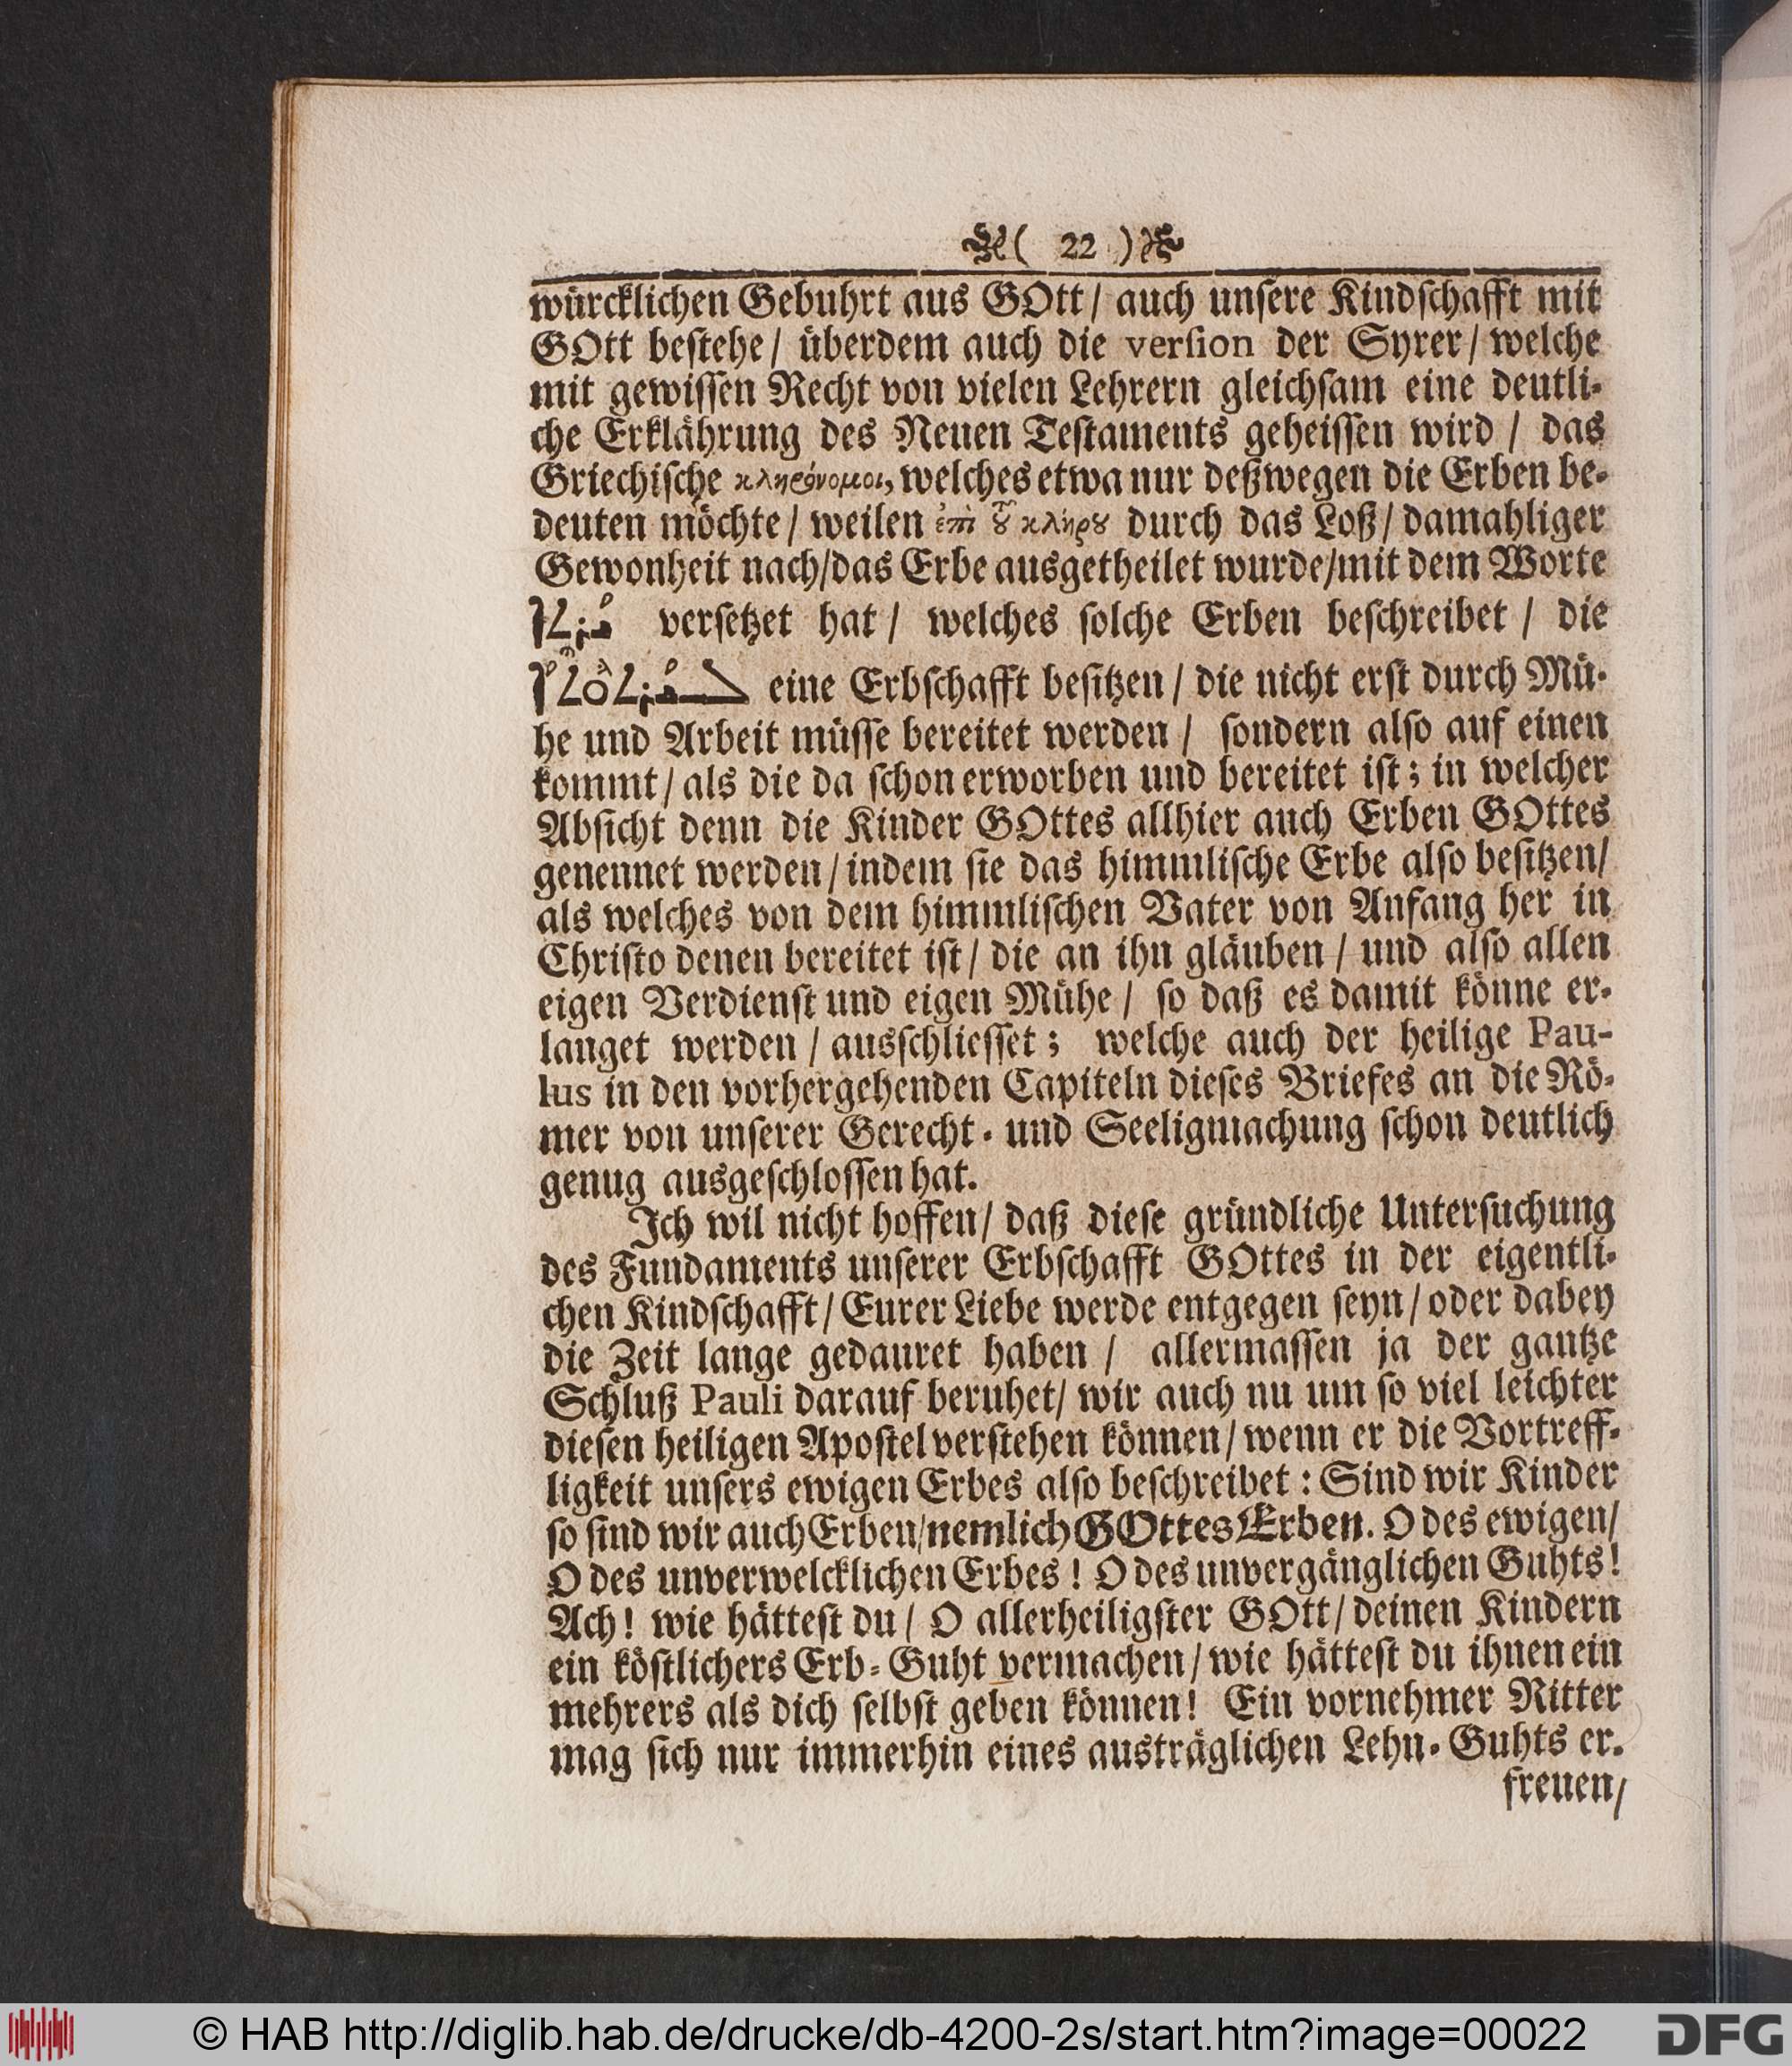 ( 22 )
würcklichen Gebuhrt aus GOtt/ auch unſere Kindſchafft mit
GOtt beſtehe/ überdem auch die verſion der Syrer/ welche
mit gewiſſen Recht von vielen Lehrern gleichſam eine deutli-
che Erklährung des Neuen Teſtaments geheiſſen wird / das
Griechiſche κληρόνομοι, welches etwa nur deßwegen die Erben be-
deuten möchte/ weilen ἐπὶ τοῦ κλήρου durch das Loß/ damahliger
Gewonheit nach/das Erbe ausgetheilet wurde/mit dem Worte
versetzet hat / welches ſolche Erben beſchreibet / die
eine Erbſchafft beſitzen / die nicht erſt durch Mü-
he und Arbeit müſſe bereitet werden / ſondern alſo auf einen
kommt/ als die da ſchon erworben und bereitet iſt; in welcher
Abſicht denn die Kinder GOttes allhier auch Erben GOttes
genennet werden/ indem ſie das himmliſche Erbe alſo beſitzen/
als welches von dem himmliſchen Vater von Anfang her in
Chriſto denen bereitet iſt/ die an ihn gläuben / und alſo allen
eigen Verdienſt und eigen Mühe / ſo daß es damit könne er-
langet werden / ausſchlieſſet; welche auch der heilige Pau-
lus in den vorhergehenden Capiteln dieſes Briefes an die Rö-
mer von unſerer Gerecht- und Seeligmachung ſchon deutlich
genug ausgeſchloſſen hat.
Ich wil nicht hoffen/ daß dieſe gründliche Unterſuchung
des Fundaments unſerer Erbſchafft GOttes in der eigentli-
chen Kindſchafft/ Eurer Liebe werde entgegen ſeyn/ oder dabey
die Zeit lange gedauret haben / allermaſſen ja der gantze
Schluß Pauli darauf beruhet/ wir auch nu um ſo viel leichter
dieſen heiligen Apoſtel verſtehen können/ wenn er die Vortreff-
ligkeit unſers ewigen Erbes alſo beſchreibet: Sind wir Kinder
ſo ſind wir auch Erben/nemlich GOttes Erben. O des ewigen/
O des unverwelcklichen Erbes! O des unvergänglichen Guhts!
Ach! wie hätteſt du/ O allerheiligſter GOtt/ deinen Kindern
ein köſtlichers Erb-Guht vermachen/ wie hätteſt du ihnen ein
mehrers als dich ſelbſt geben können! Ein vornehmer Ritter
mag ſich nur immerhin eines austräglichen Lehn-Guhts er-
freuen/
© HAB http://diglib.hab.de/drucke/db-4200-2s/start.htm?image=00022
DFG